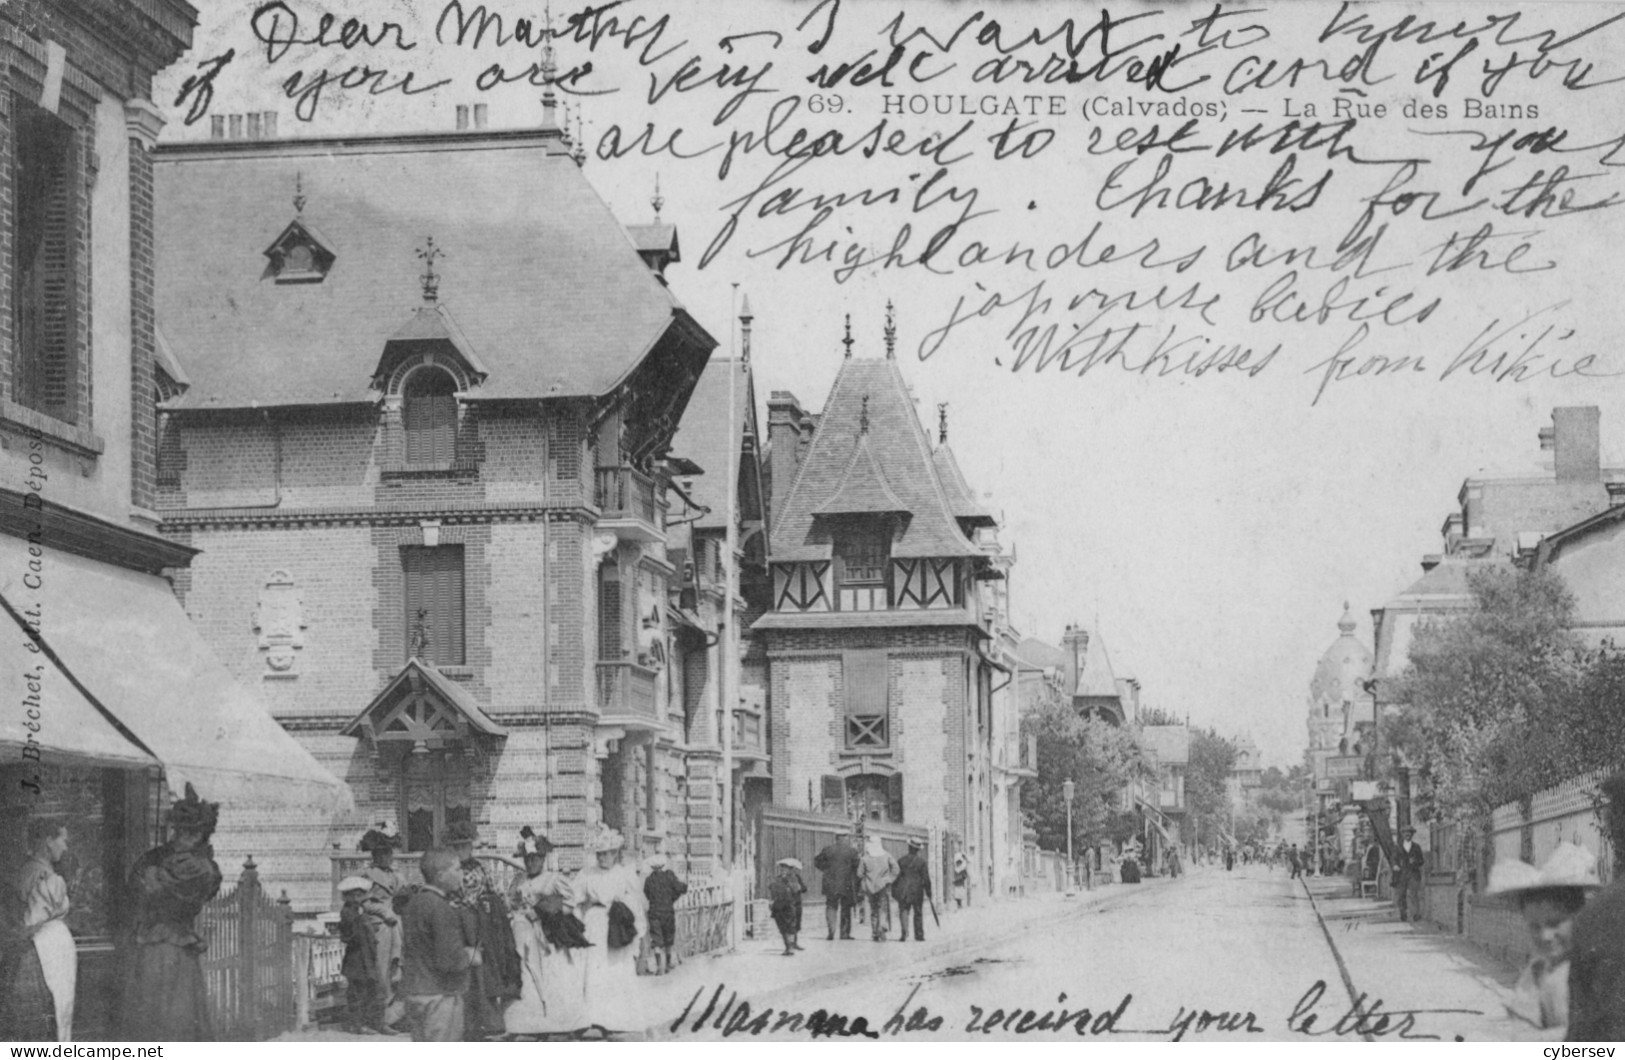 Dear Marthy - I want to know
if you are very well arrived and if you
69. HOULGATE (Calvados) — La Rue des Bains
are pleased to rest with your
family. thanks for the
highlanders and the
japonese babies
With kisses from Kikie
J. Bréchet, édit. Caen. Déposé
Mamma has received your letter.
cybersev